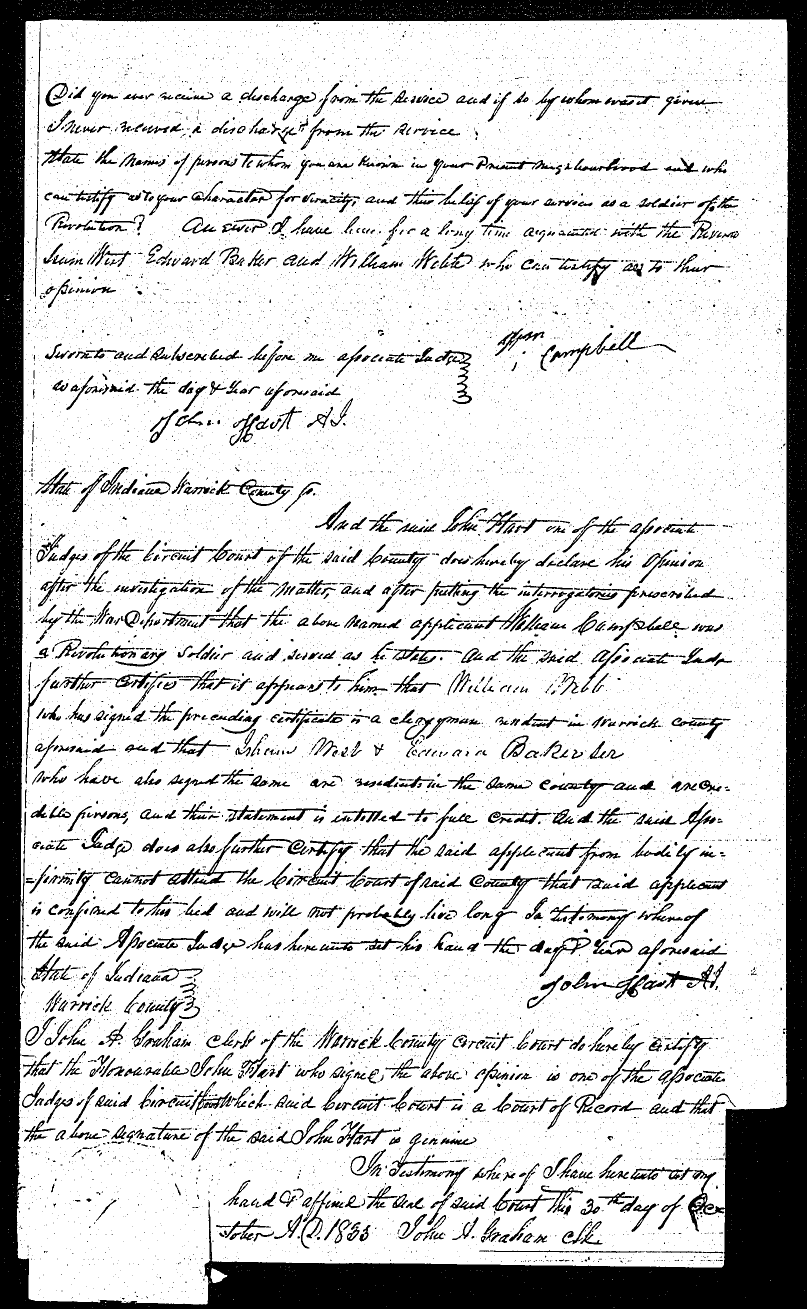 Did you ever receive a discharge from the service and if so by whom was it given
I never received a discharge from the service
State the names of persons to whom you are known in your Present neighbourhood and who
can testify as to your Character for veracity, and their belief of your services as a soldier of the
Revolution? Answer I have been for a long time acquainted with the Reverend
Isum West Edward Baker and William Webb who can testify as to their
opinion
Sworn to and subscribed before me associate Judge
as aforesaid the day & Year aforesaid
Campbell
John Hart A.J.
State of Indiana Warrick County Ss.
And the said John Hart one of the associate
Judges of the Circuit Court of the said County does hereby declare his Opinion
after the investigation of the matter, and after putting the interrogatories prescribed
by the War Department that the above named applicant William Campbell was
a Revolutionary Soldier and served as he states. And the said Associate Judge
further Certifies that it appears to him that William Webb
who has signed the preceeding certificate is a clergyman resident in Warrick County
aforesaid and that Isham West & Edward Baker Ser
who have also signed the same are residents in the same county and are cre-
dible persons, and their statement is entitled to full Credit. And the said Asso-
ciate Judge does also further Certify that the said applicant from bodily in-
=firmity cannot attend the Circuit Court of said County that said applicant
is confined to his bed and will not probably live long In testimony whereof
the said Associate Judge has hereunto set his hand the day & Year aforesaid
John Hart A.J.
State of Indiana
Warrick County
I John A. Graham Clerk of the Warrick County Circuit Court do hereby certify
that the Honourable John Hart who signed the above opinion is one of the associate
Judges of said Circuit Court which said Circuit Court is a Court of Record and that
the above signature of the said John Hart is genuine
In Testimony where of I have hereunto set my
hand & affixed the seal of said Court this 30th day of Oc
tober A.D. 1833 John A. Graham Clk